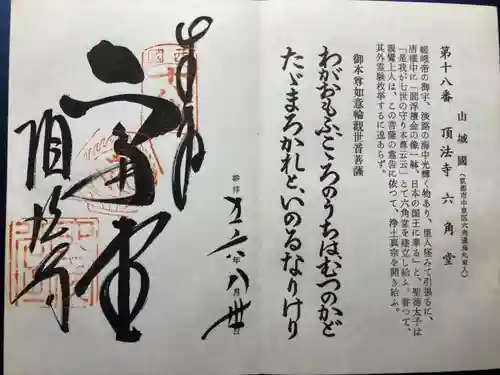 第十八番 山城國 頂法寺 六角堂
(京都市中京区六角通烏丸東入)
嵯峨帝の御宇、淡路の海中光輝く物あり、里人怪みて引揚るに、
唐櫃中に「閻浮檀金の像一躰、日本の国王に華る」と、聖徳太子は
「是我が七世の守り本尊云云」とて六角堂を建立し給ふ。
親鸞上人は、この菩薩の霊告に依つて、浄土真宗を開き給ふ。
其外霊験枚挙するに遑あらず。
御本尊如意輪觀世音菩薩
わがおもふこゝろのうちは、むつのかど
たゞまろかれと、いのるなりけり
奉拝 年 八月 日
六角堂
頂法寺